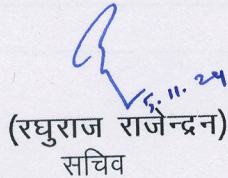 5.11.24
(रघुराज राजेन्द्रन)
सचिव